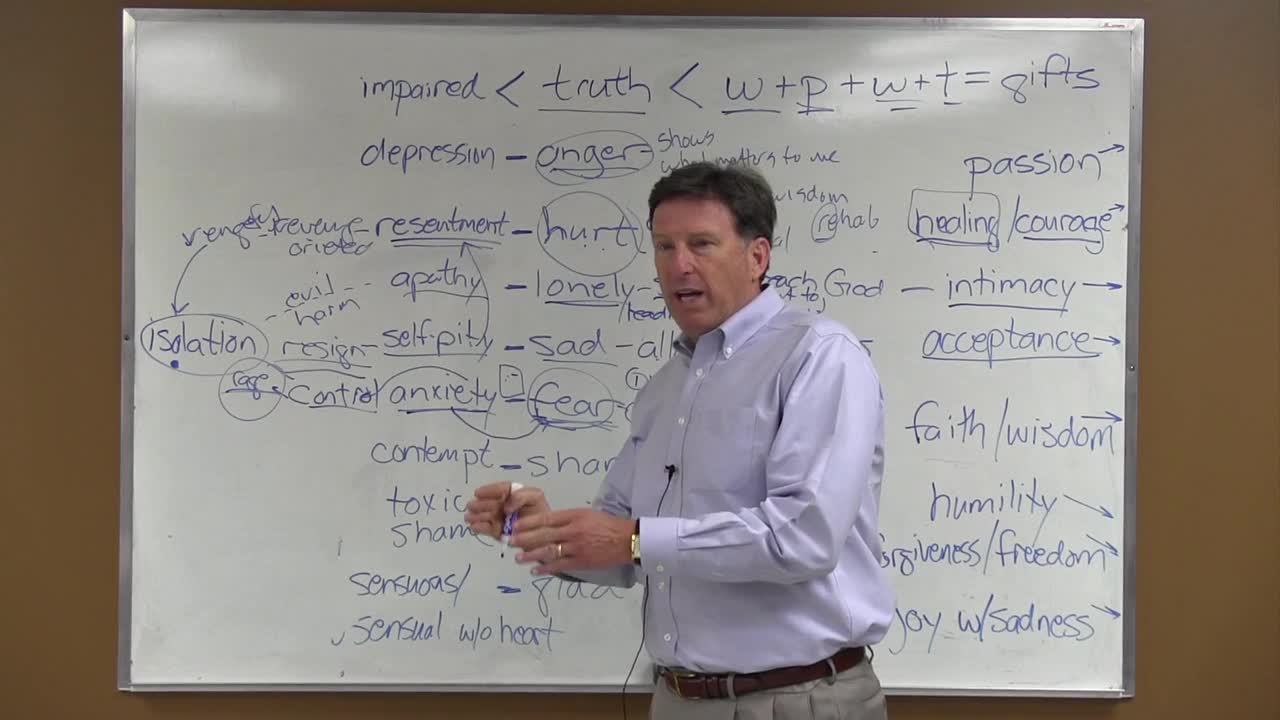 impaired < truth < w + p + w + t = gifts
depression - anger - shows
what matters to me
passion
wisdom
resentment - hurt
rehab
healing / courage
oriented
apathy - lonely
God - intimacy
evil
harm
isolation
resign - self-pity - sad - all
acceptance
rage
control anxiety - fear
faith/wisdom
contempt - sham
toxic
shame
humility
rgiveness/freedom
sensuous/ - glad
sensual w/o heart
joy w/sadness